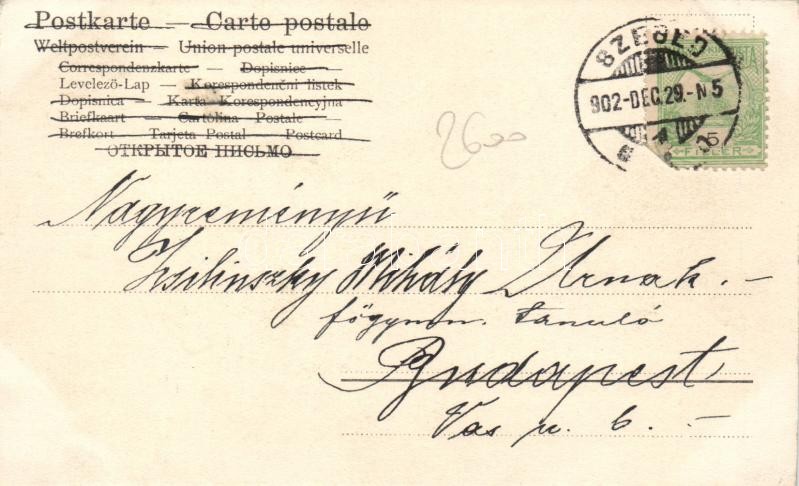 Postkarte — Carte postale
Weltpostverein — Union postale universelle
Correspondenzkarte — Dopisnice —
Levelező-Lap — Korespondenční lístek
Dopisnica — Karta Korespondencyjna
Briefkaart — Cartolina Postale —
Brefkort — Tarjeta Postal — Postcard
ОТКРЫТОЕ ПИСЬМО
SZEGED
902-DEC.29.-N5
5
FILLÉR
2600
Nagyreményü
Zsilinszky Mihály Urnak. —
főgymn. tanuló
Budapest
Vas u. 6. —